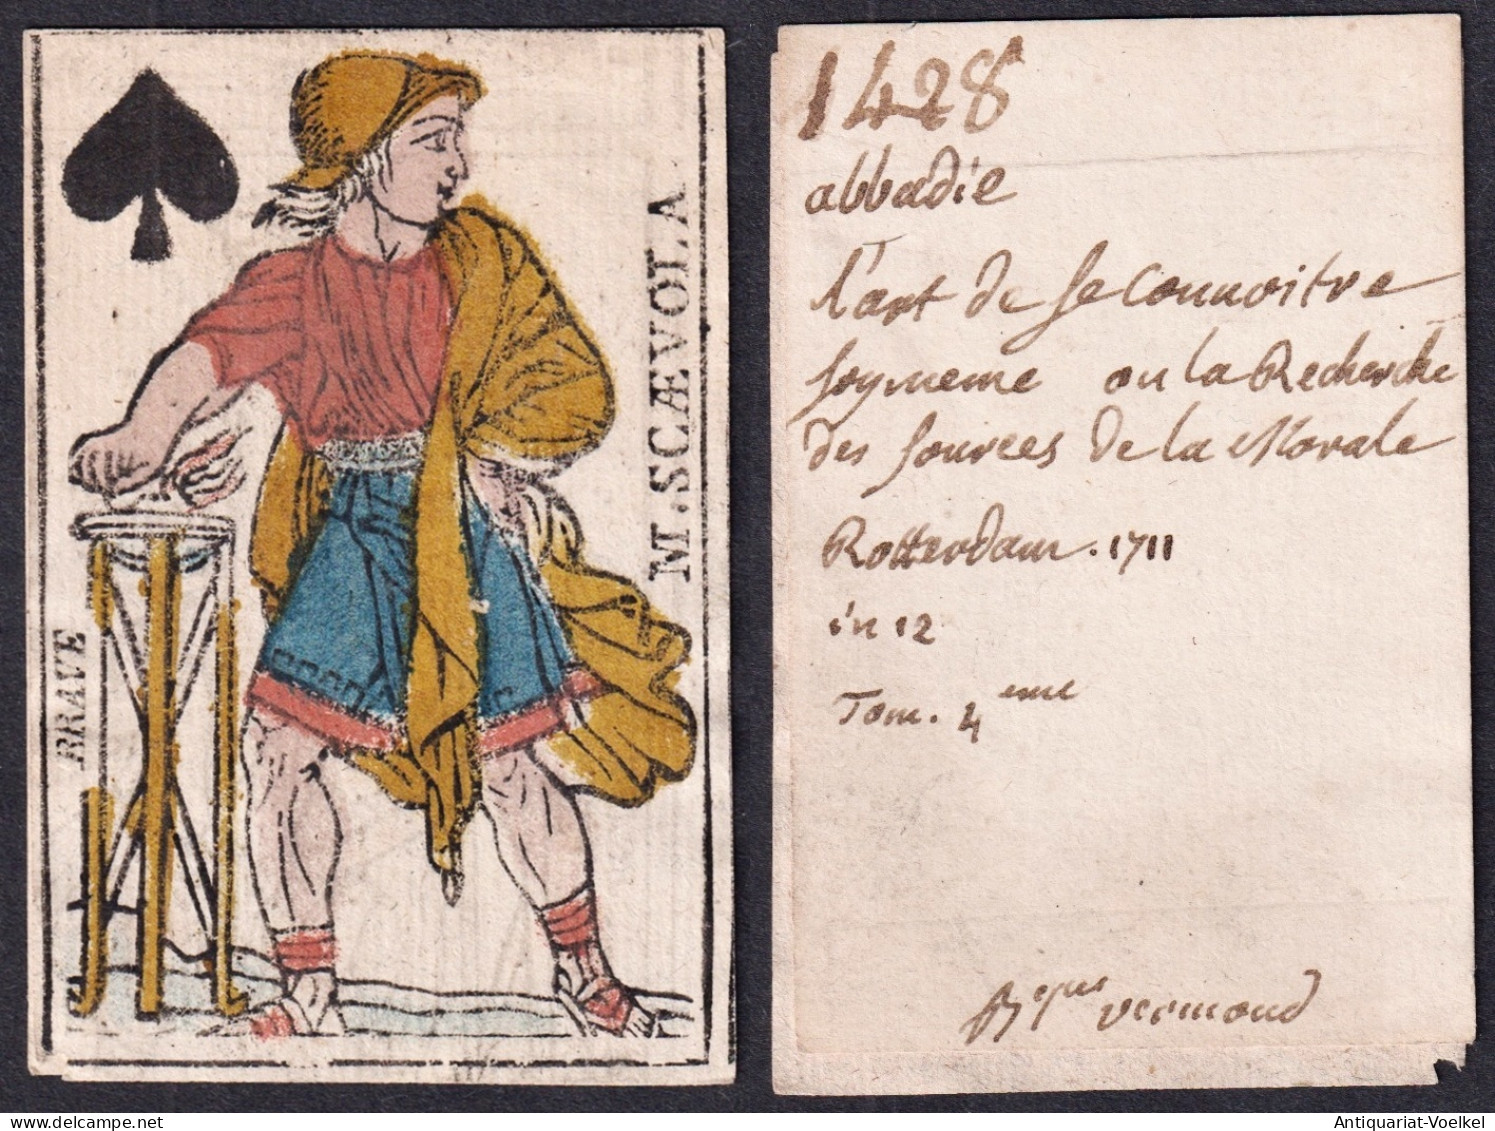 M. SCÆVOLA
BRAVE
1428
abbadie
l'art de se connoitre
soymeme ou la Recherche
des sources de la Morale
Rotterdam. 1711
in 12
Tom. 4eme
vermond
Antiquariat-Voelkel